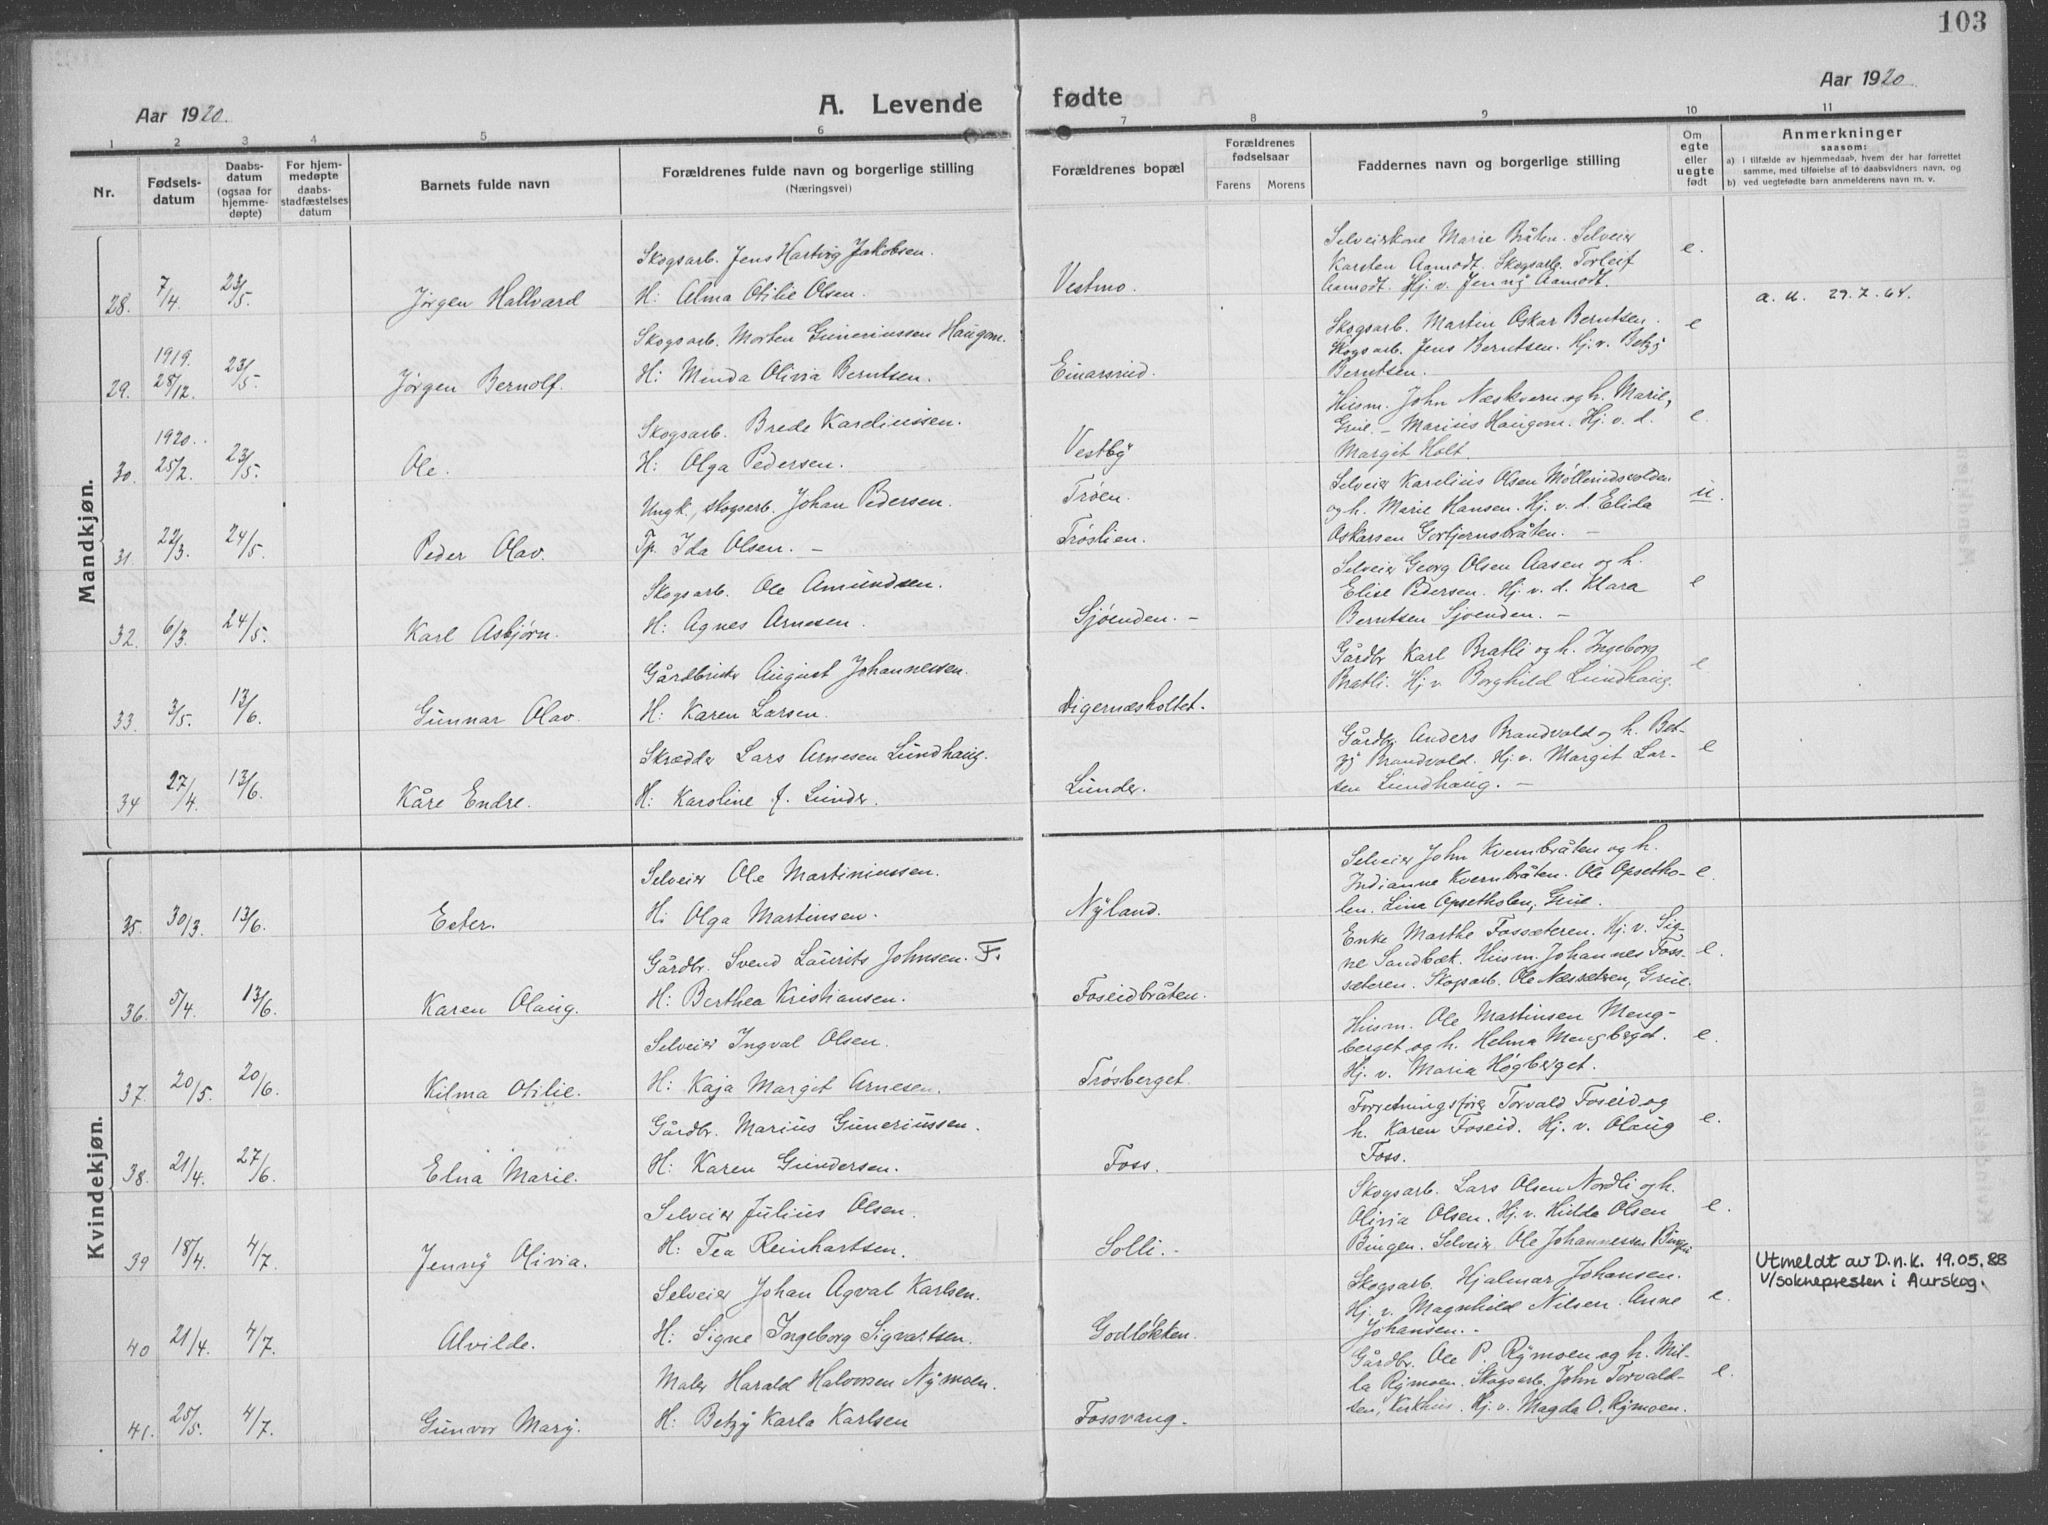 103
Aar 1920.
A. Levende fødte
Aar 1920.
1 2 3 4 5 6 7 8 9 10 11
Nr.
Fødselsdatum
Daabsdatum (ogsaa for hjemmedøpte)
For hjemmedøpte daabsstadfæstelses datum
Barnets fulde navn
Forældrenes fulde navn og borgerlige stilling (Næringsvei)
Forældrenes bopæl
Forældrenes fødselsaar
Farens
Morens
Faddernes navn og borgerlige stilling
Om egte eller uegte født
Anmerkninger
saasom:
a) i tilfælde av hjemmedaab, hvem der har forrettet samme, med tilføielse af to daabsvidners navn, og
b) ved uegtefødte barn anmelderens navn m. v.
Mandkjøn.
28. 7/4 23/5. Jørgen Hallvard
Skogsarb. Jens Hartvig Jakobsen.
H: Alma Otilie Olsen.
Vestmo.
Selveierkone Marie Bråten. Selveier
Karsten Aamodt. Skogsarb. Torleif
Aamodt. Hj. v. Jenny Aamodt.
e.
a. u. 29.7.64.
29. 1919. 28/12. 23/5. Jørgen Bernolf.
Skogsarb. Morten Guneriussen Haugom.
H: Minda Olivia Berntsen.
Einarsrud.
Skogsarb. Martin Oskar Berntsen.
Skogsarb. Jens Berntsen. Hj. v. Betzy
Berntsen.
e
30. 1920. 25/2. 23/5. Ole.
Skogsarb. Brede Kareliussen.
H: Olga Pedersen.
Vestby
Husm. John Næskvern og h. Marie,
Grue. – Marius Haugom. Hj. v. d.
Margit Holt.
e.
31. 22/3. 24/5. Peder Olav.
Ungk., skogsarb. Johan Pedersen.
Tp. Ida Olsen. –
Trøen.
Trøslien.
Selveier Karelius Olsen Møllerudsvolden
og h. Marie Hansen. Hj. v. d. Elida
Oskarsen Gortjernsbråten. –
u.
32. 6/3. 24/5. Karl Asbjørn.
Skogsarb. Ole Amundsen.
H: Agnes Arnesen.
Sjøenden. –
Selveier Georg Olsen Aasen og h.
Elise Pedersen. Hj. v. d. Klara
Berntsen Sjøenden. –
e
33. 3/5. 13/6. Gunnar Olav.
Gårdbruker August Johannessen.
H: Karen Larsen.
Digernæsholtet.
Gårdbr. Karl Bratli og h. Ingeborg
Bratli. Hj. v. Borghild Lundhaug.
e
34 27/4. 13/6. Kåre Endre.
Skrædder Lars Arnesen Lundhaug.
H: Karoline f. Lunder.
Lunder.
Gårdbr. Anders Brandvold og h. Bet-
zy Brandvold. Hj. v. Margit Lar-
sen Lundhaug. –
e
Kvindekjøn.
35. 30/3. 13/6. Ester.
Selveier Ole Martiniussen.
H: Olga Martinsen.
Nyland.
Selveier John Kvernbråten og h.
Indianne Kvernbråten. Ole Opsetho-
len. Lina Opsetholen, Grue.
e.
36. 5/4. 13/6. Karen Olaug.
Gårdbr. Svend Laurits Johnsen. F.
H: Berthea Kristiansen.
Foseidbråten.
Enke Marthe Fossæteren. Hj. v. Sig-
ne Sandbæk. Husm. Johannes Foss-
sæteren. Skogsarb. Ole Næssetren, Grue.
e.
37. 20/5. 20/6. Kilma Otilie.
Selveier Ingval Olsen.
H: Kaja Margit Arnesen.
Trøsberget.
Husm. Ole Martinsen Meng-
berget og h. Helma Mengberget.
Hj. v. Maria Høgberget.
e.
38. 21/4. 27/6. Elna Marie.
Gårdbr. Marius Guneriussen.
H: Karen Gundersen.
Foss.
Forretningsfører Torvald Foseid og
h. Karen Foseid. Hj. v. Olaug
Foss.
e.
39 18/4. 4/7. Jenny Olivia.
Selveier Julius Olsen.
H: Tea Reinhartsen.
Solli. –
Skogsarb. Lars Olsen Nordli og h.
Olivia Olsen. Hj. v. Hilda Olsen
Bingen. Selveier Ole Johannessen Bingen
e.
Utmeldt av D.n.k. 19.05.88
v/soknepresten i Aurskog.
40 21/4. 4/7. Alvilde.
Selveier Johan Agval Karlsen.
H: Signe Ingeborg Sigvartsen.
Godløkken.
Skogsarb. Hjalmar Johansen.
Hj. v. Magnhild Nilsen. Anne
Johansen. –
e.
41. 25/5. 4/7. Gunvor Mary.
Maler Harald Halvorsen Nymoen.
H: Betzy Karla Karlsen
Fossvang.
Gårdbr. Ole P. Rymoen og h. Mil-
la Rymoen. Skogsarb. John Torvald-
sen, Kirkhus. Hj. v. Magda O. Rymoen.
e.